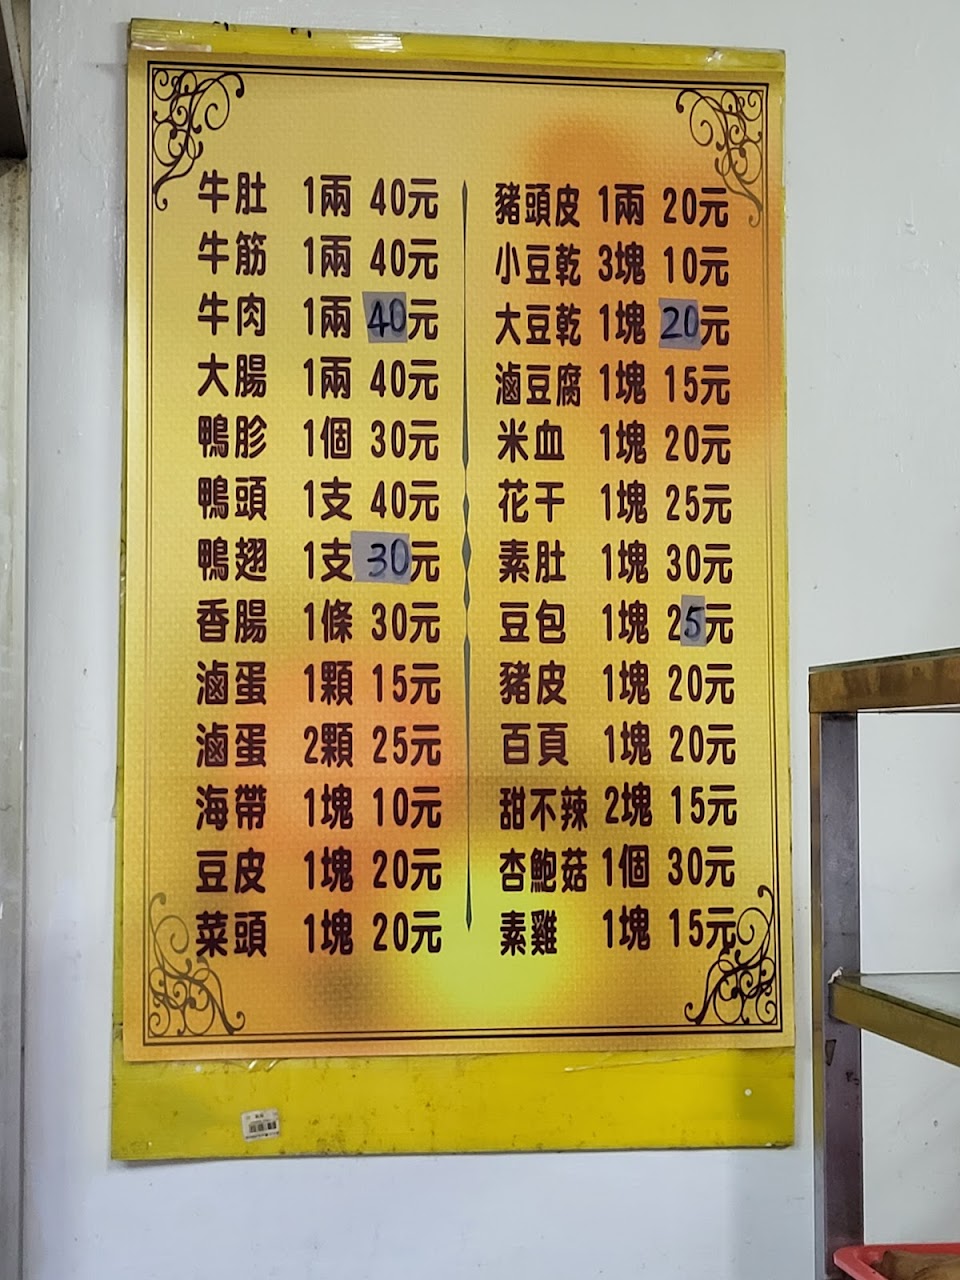 牛肚 1兩 40元
牛筋 1兩 40元
牛肉 1兩 40元
大腸 1兩 40元
鴨胗 1個 30元
鴨頭 1支 40元
鴨翅 1支 30元
香腸 1條 30元
滷蛋 1顆 15元
滷蛋 2顆 25元
海帶 1塊 10元
豆皮 1塊 20元
菜頭 1塊 20元
豬頭皮 1兩 20元
小豆乾 3塊 10元
大豆乾 1塊 20元
滷豆腐 1塊 15元
米血 1塊 20元
花干 1塊 25元
素肚 1塊 30元
豆包 1塊 25元
豬皮 1塊 20元
百頁 1塊 20元
甜不辣 2塊 15元
杏鮑菇 1個 30元
素雞 1塊 15元